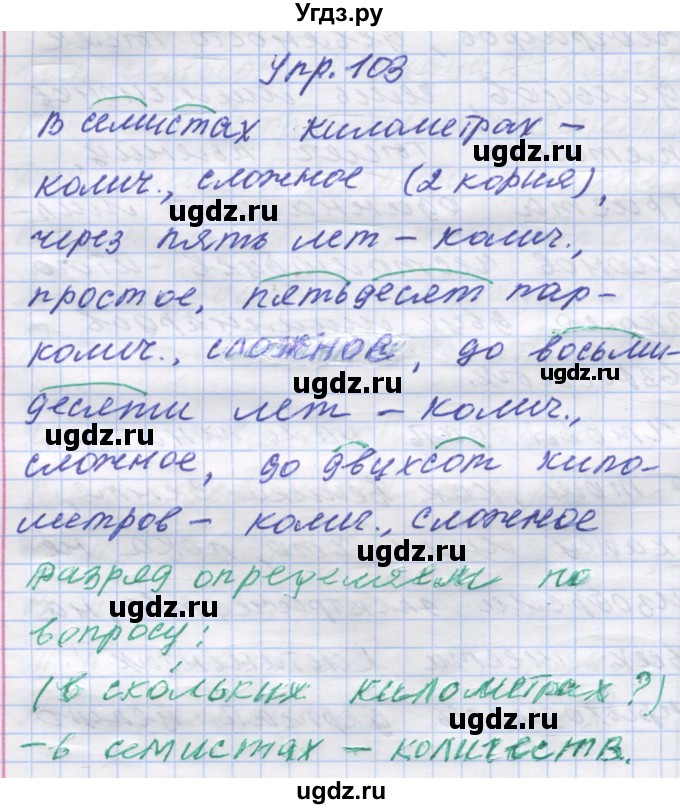 Угдз.ру
Упр. 103
в семистах километрах –
колич., сложное (2 корня),
через пять лет – колич.,
простое, пятьдесят пар –
колич., сложное, до восьми-
десяти лет – колич.,
сложное, до двухсот кило-
метров – колич., сложное
Разряд определяем по
вопросу:
(в скольких километрах?)
– в семистах – количеств.
ugdz.ru
ugdz.ru
ugdz.ru
ugdz.ru
ugdz.ru
ugdz.ru
ugdz.ru
ugdz.ru
ugdz.ru
ugdz.ru
ugdz.ru
ugdz.ru
ugdz.ru